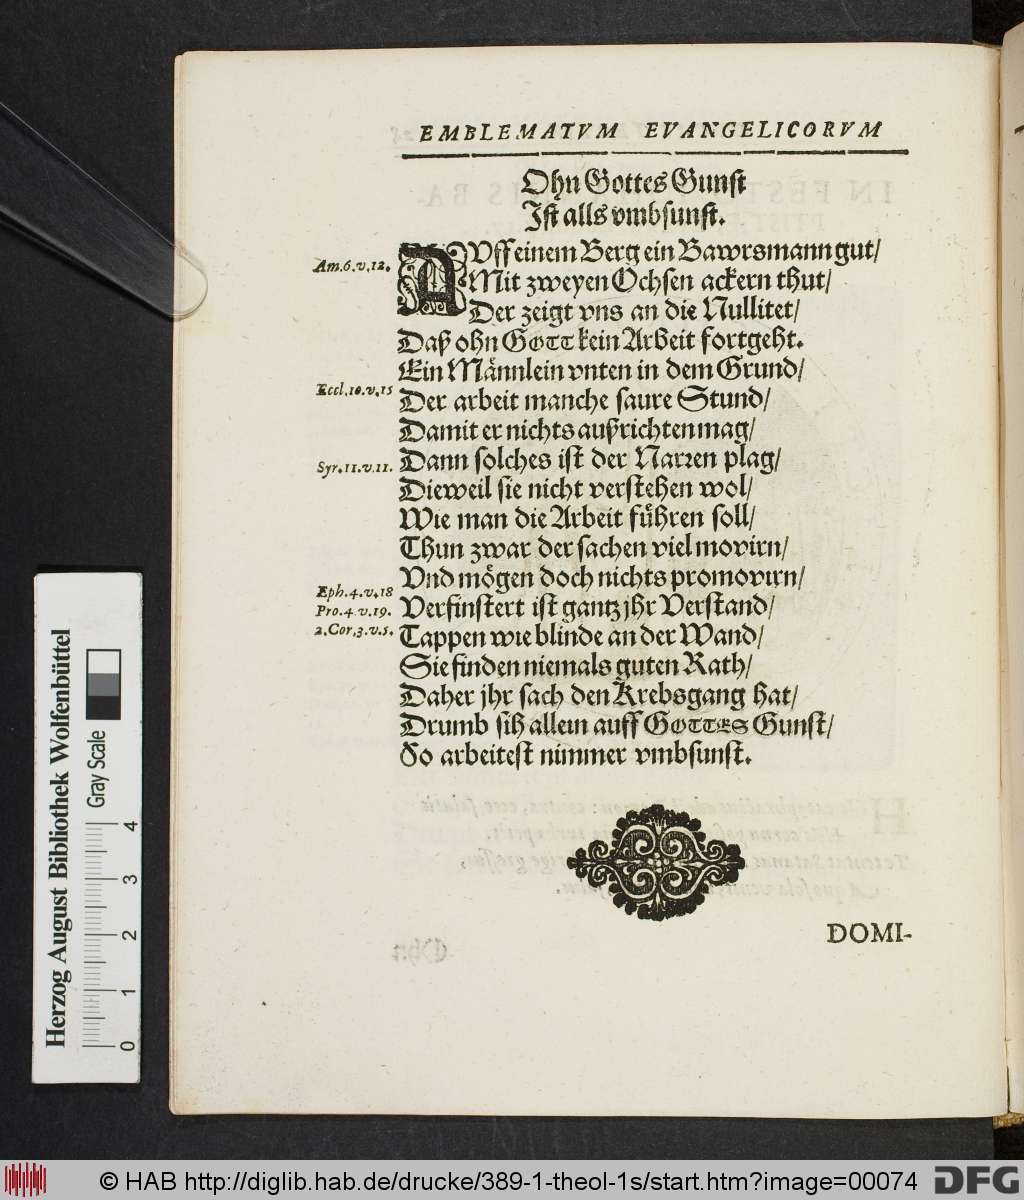 EMBLEMATVM EVANGELICORVM
Ohn Gottes Gunst
Ist alls vmbsunst.
AVff einem Berg ein Bawrsmann gut/
Am.6.v.12.
Mit zweyen Ochsen ackern thut/
Der zeigt vns an die Nullitet/
Daß ohn GOTT kein Arbeit fortgeht.
Ein Männlein vnten in dem Grund/
Eccl.10.v.15
Der arbeit manche saure Stund/
Damit er nichts außrichten mag/
Syr.11.v.11.
Dann solches ist der Narren plag/
Dieweil sie nicht verstehen wol/
Wie man die Arbeit führen soll/
Thun zwar der sachen viel movirn/
Vnd mögen doch nichts promovirn/
Eph.4.v.18
Pro.4.v.19.
Verfinstert ist gantz jhr Verstand/
2.Cor.3.v.5.
Tappen wie blinde an der Wand/
Sie finden niemals guten Rath/
Daher jhr sach den Krebsgang hat/
Drumb sih allein auff GOTTES Gunst/
So arbeitest nimmer vmbsunst.
DOMI-
Herzog August Bibliothek Wolfenbüttel
Gray Scale
0 1 2 3 4
© HAB http://diglib.hab.de/drucke/389-1-theol-1s/start.htm?image=00074
DFG